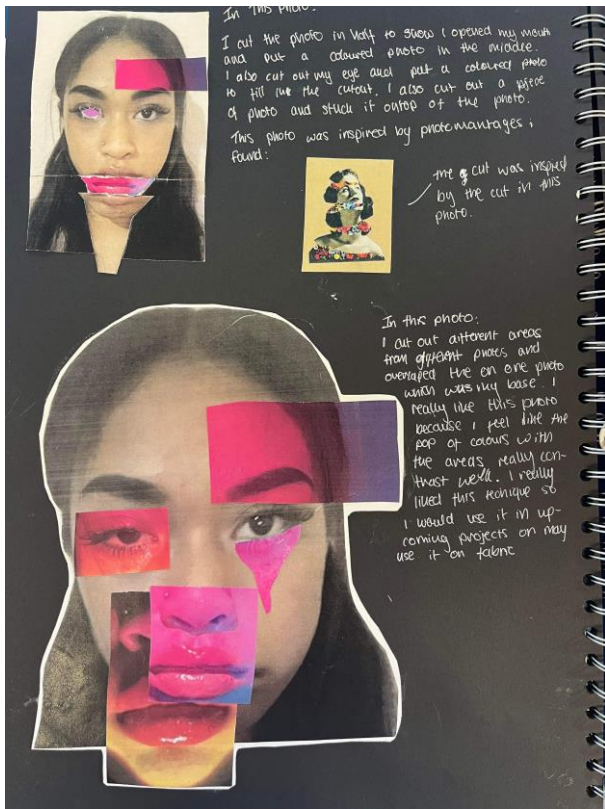 In This Photo:
I cut the photo in half to show I opened my mouth
and put a coloured photo in the middle.
I also cut out my eye and put a coloured photo
to fill the cutout. I also cut out a piece
of photo and stuck it ontop of the photo.
This photo was inspired by photomantages i
found:
the cut was inspired
by the cut in this
photo.
In this photo:
I cut out different areas
from different photos and
overlaped the on one photo
which was my base. I
really like this photo
because I feel like the
pop of colours with
the areas really con-
trast well. I really
liked this tecnique so
I would use it in up-
coming projects or may
use it on fabric